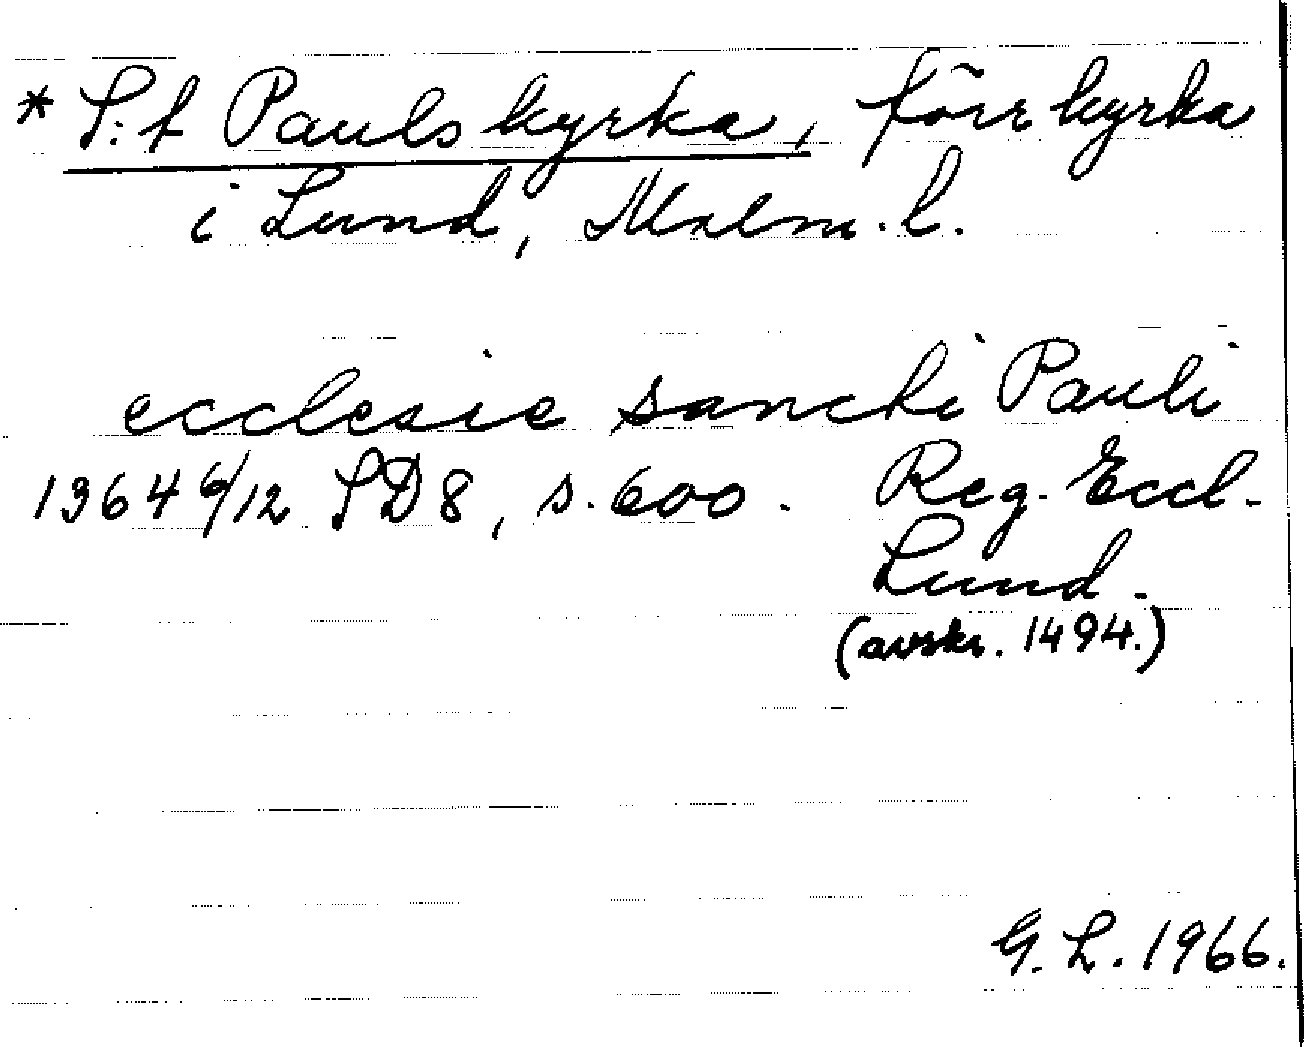 * S:t Pauls kyrka, förr kyrka
i Lund, Malm. l.
ecclesie sancti Pauli
1364 6/12 SD 8, s. 600. Reg. Eccl.
Lund.
(avskr. 1494.)
G. L. 1966.